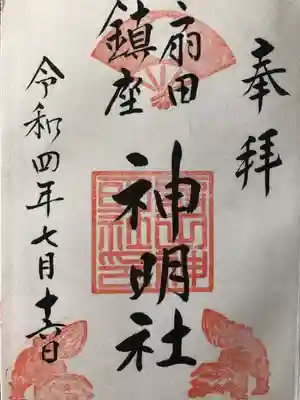 奉拝
扇田
鎮座
神明社
令和四年七月十六日